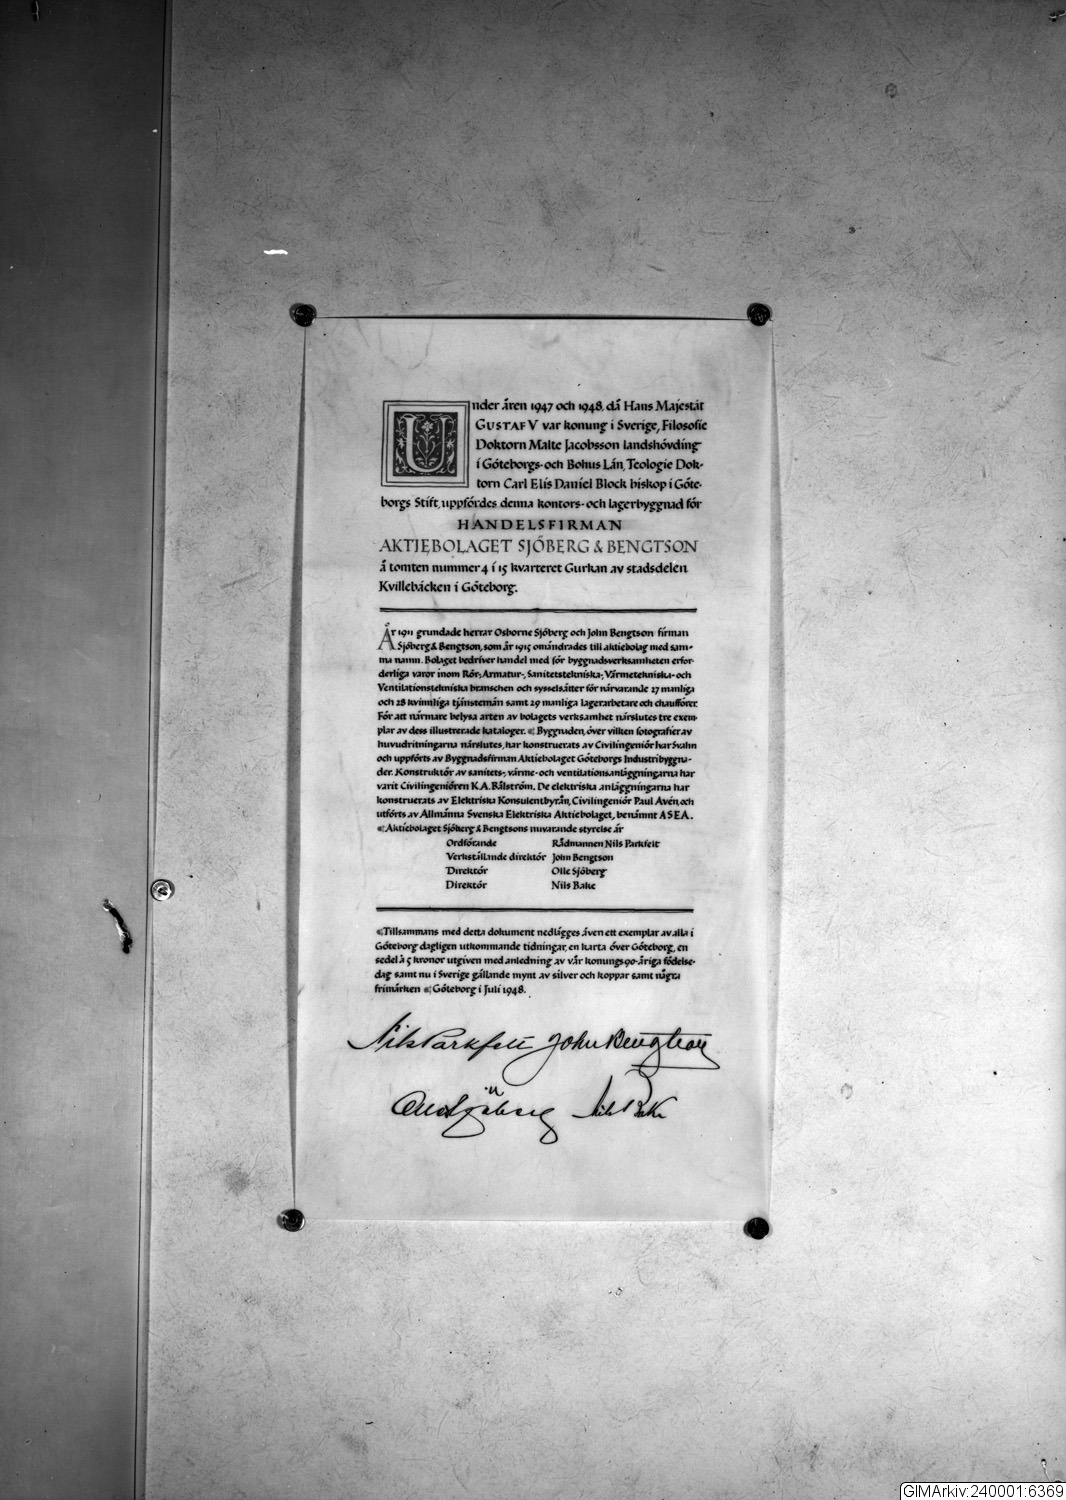 Under åren 1947 och 1948, då Hans Majestät
GUSTAF V var konung i Sverige, Filosofie
Doktorn Malte Jacobsson landshövding
i Göteborgs- och Bohus Län, Teologie Dok-
torn Carl Elis Daniel Block biskop i Göte-
borgs Stift, uppfördes denna kontors- och lagerbyggnad för
HANDELSFIRMAN
AKTIEBOLAGET SJÖBERG & BENGTSON
å tomten nummer 4 i 15 kvarteret Gurkan av stadsdelen
Kvillebäcken i Göteborg.
År 1911 grundade herrar Osborne Sjöberg och John Bengtson firman
Sjöberg & Bengtson, som år 1915 omändrades till aktiebolag med sam-
ma namn. Bolaget bedriver handel med för byggnadsverksamheten erfor-
derliga varor inom Rör-, Armatur-, Sanitetstekniska-, Värmetekniska- och
Ventilationstekniska branschen och sysselsätter för närvarande 27 manliga
och 28 kvinnliga tjänstemän samt 29 manliga lagerarbetare och chaufförer.
För att närmare belysa arten av bolagets verksamhet närslutes tre exem-
plar av dess illustrerade kataloger. Byggnaden, över vilken fotografier av
huvudritningarna närslutes, har konstruerats av Civilingeniör Ivar Svahn
och uppförts av Byggnadsfirman Aktiebolaget Göteborgs Industribyggna-
der. Konstruktör av sanitets-, värme- och ventilationsanläggningarna har
varit Civilingeniören K.A. Bälström. De elektriska anläggningarna har
konstruerats av Elektriska Konsulentbyrån, Civilingeniör Paul Avén, och
utförts av Allmänna Svenska Elektriska Aktiebolaget, benämnt ASEA.
Aktiebolaget Sjöberg & Bengtsons nuvarande styrelse är
Ordförande Rådmannen Nils Parkfelt
Verkställande direktör John Bengtson
Direktör Olle Sjöberg
Direktör Nils Bake
Tillsammans med detta dokument nedlägges även ett exemplar av alla i
Göteborg dagligen utkommande tidningar, en karta över Göteborg, en
sedel à 5 kronor utgiven med anledning av vår konungs 90-åriga födelse-
dag samt nu i Sverige gällande mynt av silver och koppar samt några
frimärken Göteborg i Juli 1948.
Nils Parkfelt John Bengtson
Olle Sjöberg Nils Bake
GIMArkiv:240001:6369